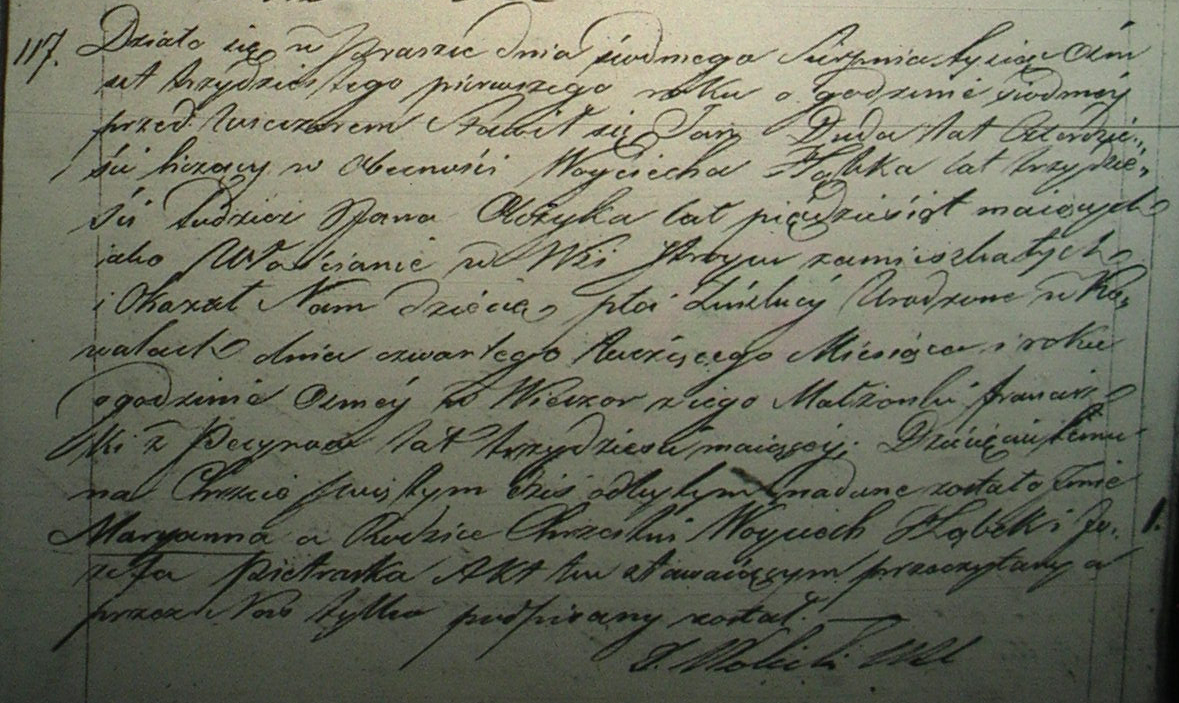 117. Działo się w Praszce dnia siódmego Sierpnia tysiąc Ośm
set trzydziestego pierwszego roku o godzinie siódmey
przed wieczorem Stawił się Jan Duda lat Czterdzie„
ści liczący w obecności Woyciecha Ząbka lat trzydzie„
ści tudzież Jana lat pięćdziesiąt maiących
iako Włościanie w Wsi zamieszkałych
i Okazał Nam dziecię płci żeńskiey Urodzone w Ko„
walach dnia czwartego bieżącego Miesiąca i roku
o godzinie Osmey w Wieczor z iego Małżonki Francisz„
ki z Pecynow lat trzydzieści maiącey. Dziecięciu temu
na Chrzcie Świętym dziś odbytym nadane zostało Imie
Maryanna a Rodzice Chrzestni Woyciech Ząbek i Jo„ 1.
zefa Pietraska Akt ten stawaiącym przeczytany a
przez Nas tylko podpisany został.